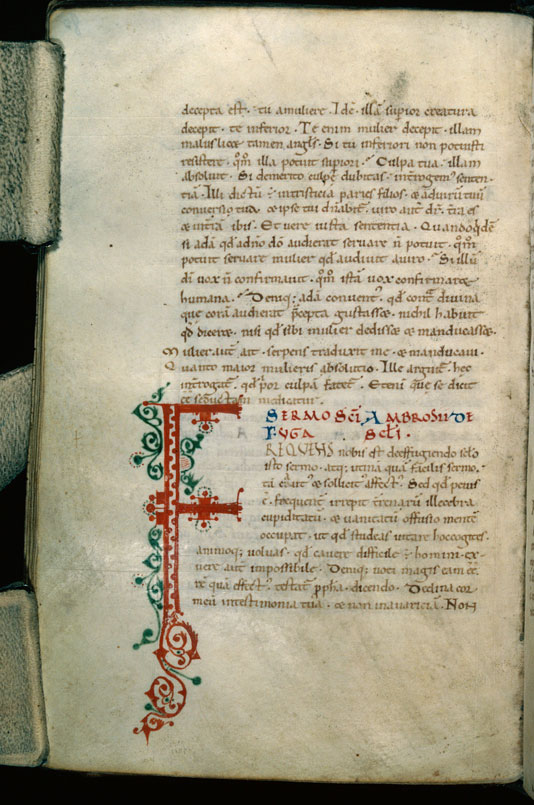 decepta est · tu a muliere · Idē · illā supior creatura
decepit · te inferior · Te enim mulier decepit · illam
malus licet tamen angĺs · Si tu inferiori non potuisti
resistere · qm̄ illa potuit supiori · Culpa tua · illam
absoluit · Si de merito culpe dubitas · introgem' senten
tiā · Illi dictū ÷ in tristicia paries filios · et ad uirū tuū
conuersio tua · et ipse tui dn̄abit · uiro aut̄ dr̄ · t̄ra es
et in t̄rā ibis · Et uere iusta sententia · Quando qdē
si adā qd a dn̄o dō audierat seruare n̄ potuit · qm̄
potuit seruare mulier qd audiuit a uiro · Si illū
dī uox n̄ confirmauit · qm̄ istā uox confirmaret
humana · Deniq; adā conuent' · qd cont̄ diuina
que corā audierit p̄cepta gustasset · nichil habuit
qd diceret · nisi qd sibi mulier dedisset et manducasset ·
Mulier aut̄ ait · serpens seduxit me · et manducaui ·
Quanto maior mulieris absolutio · Ille arguit' · hec
introgat' · qd p̄or culpā fatet' · Etenī que se dicit
et seductam indicatur ·
SERMO SC̄I AMBROSII DE
FUGA SCĹI ·
FREQUENS nobis est de effugiendo scĺo
isto sermo · atq; utinā quā facilis sermo ·
tā caut' et sollicit' affect' · Sed qd peius
ē · frequent' irrepit t̄renarū illecebra
cupiditatū · et uanitatū offusio mentē
occupat · ut qd studeas uitare hoc cogites ·
animoq; uoluas · qd cauere difficile ÷ homini · ex
uere aut̄ impossibile · Deniq; uoti magis eam ēē
rē quā effect' · testat' ppha · dicendo · Declina cor
meū in testimonia tua · et non in auariciā · Non